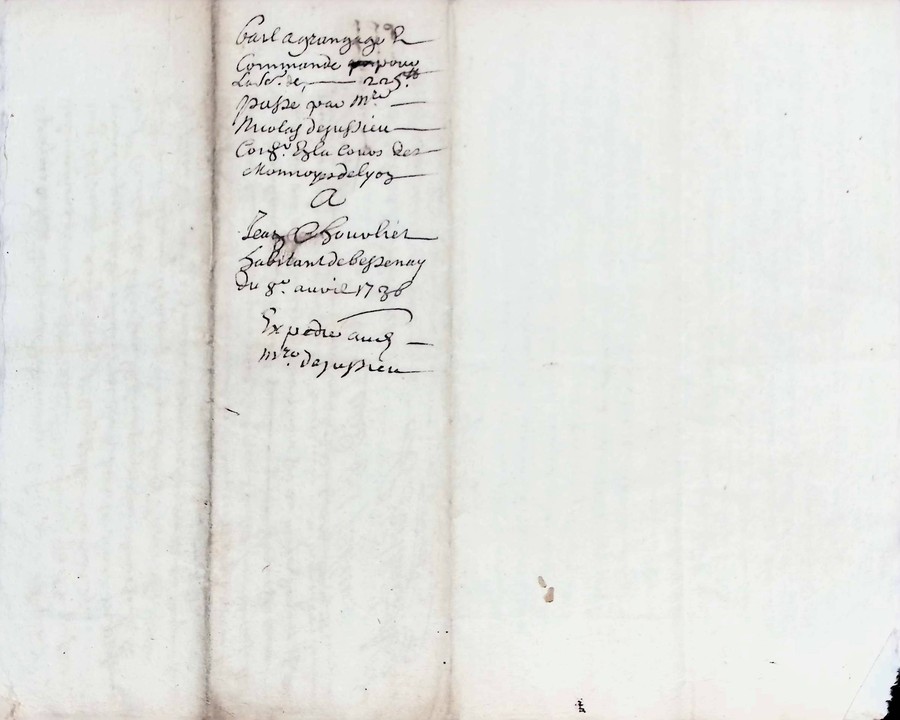 Bail a grangage &
Commande pour
La So.e de, 225 ₶
passé par m.re
Nicolas dejussieu
Con.er En la Cours des
Monnoyes de lyon
A
Jean Chouvliet
habitant de bessenay
du 8.e auril 1736
Expedié aud
m.re dejussieu